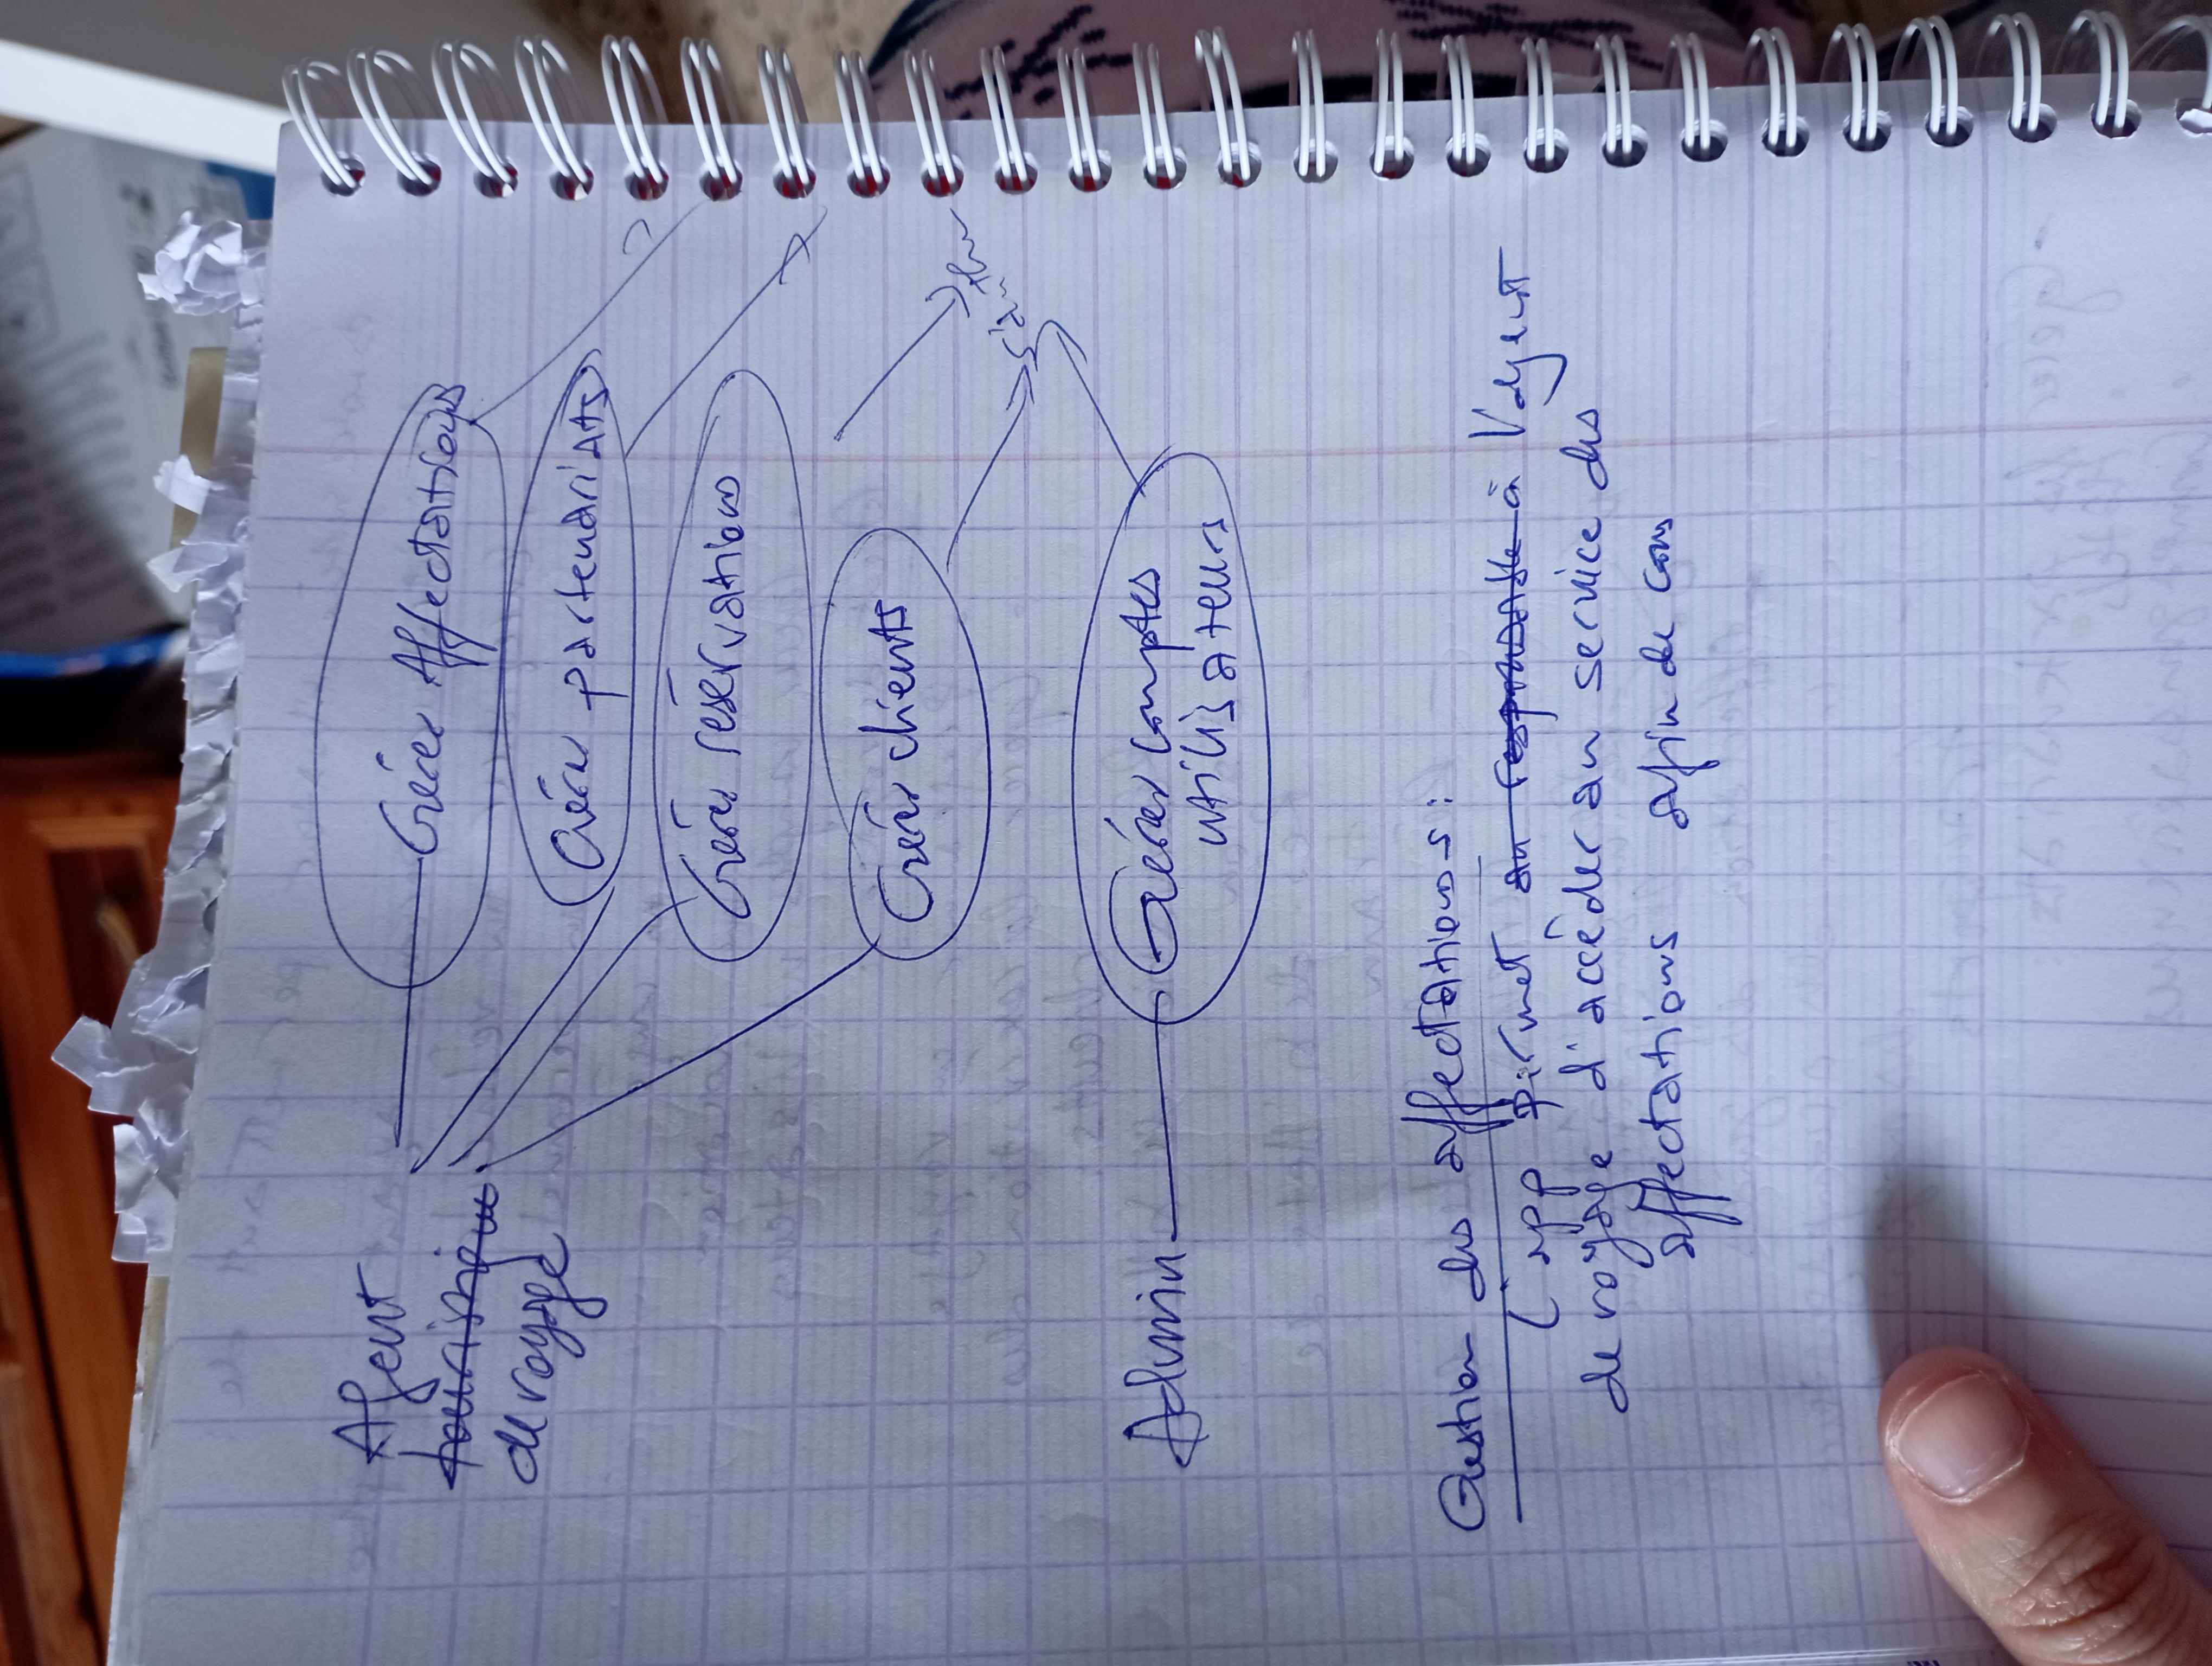 Agent
tourisique
de voyage
Gérer Affectations
Gérer partenariats
Gérer réservations
Gérer clients
s'auth
Admin
Gérer comptes
utilisateurs
Gestion des affectations :
L'app permet au responsable à l'agent
de voyage d'accéder au service des
affectations afin de cons